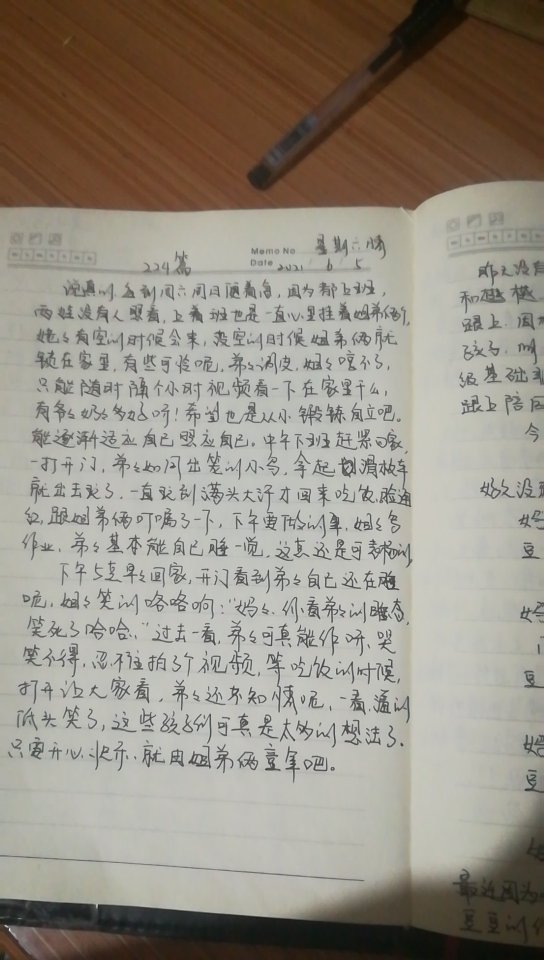 星期六 晴
Memo No
224篇
Date 2021 6 5
说真的每到周六周日随着急,因为都上班,
两娃没有人照看,上着班也是一直心里挂着姐弟俩个,
姥姥有空的时候会来,没空的时候姐弟俩就
锁在家里,有些可怜呢,弟弟调皮,姐姐管不了,
只能随时隔个小时视频看一下在家里干么,
有爷爷奶奶多好呀!希望也是从小锻练自立吧。
能逐渐适应自己照应自己。中午下班赶紧回家,
一打开门,弟弟如同出笼的小鸟,拿起滑板车
就出去玩了,一直玩到满头大汗才回来吃饭,脸通
红,跟姐弟俩叮嘱了一下,下午要做的事,姐姐写
作业、弟弟基本能自己睡一觉,这真还是可表扬的
下午5点早早回家,开门看到弟弟自己还在睡
呢,姐姐笑的咯咯响:"妈妈、你看弟弟的睡态,
笑死了哈哈、"过去一看,弟弟可真能作呀、哭
笑不得,忍不住拍了个视频,等吃饭的时候,
打开让大家看,弟弟还不知情呢,一看,逗的
低头笑了,这些孩子们可真是太多的想法了.
只要开心、快乐、就由姐弟俩童年吧。
昨天没有
和
跟上.因
孩子,
级基础
跟上陪
今
豆
豆
豆
最近因为
豆豆的